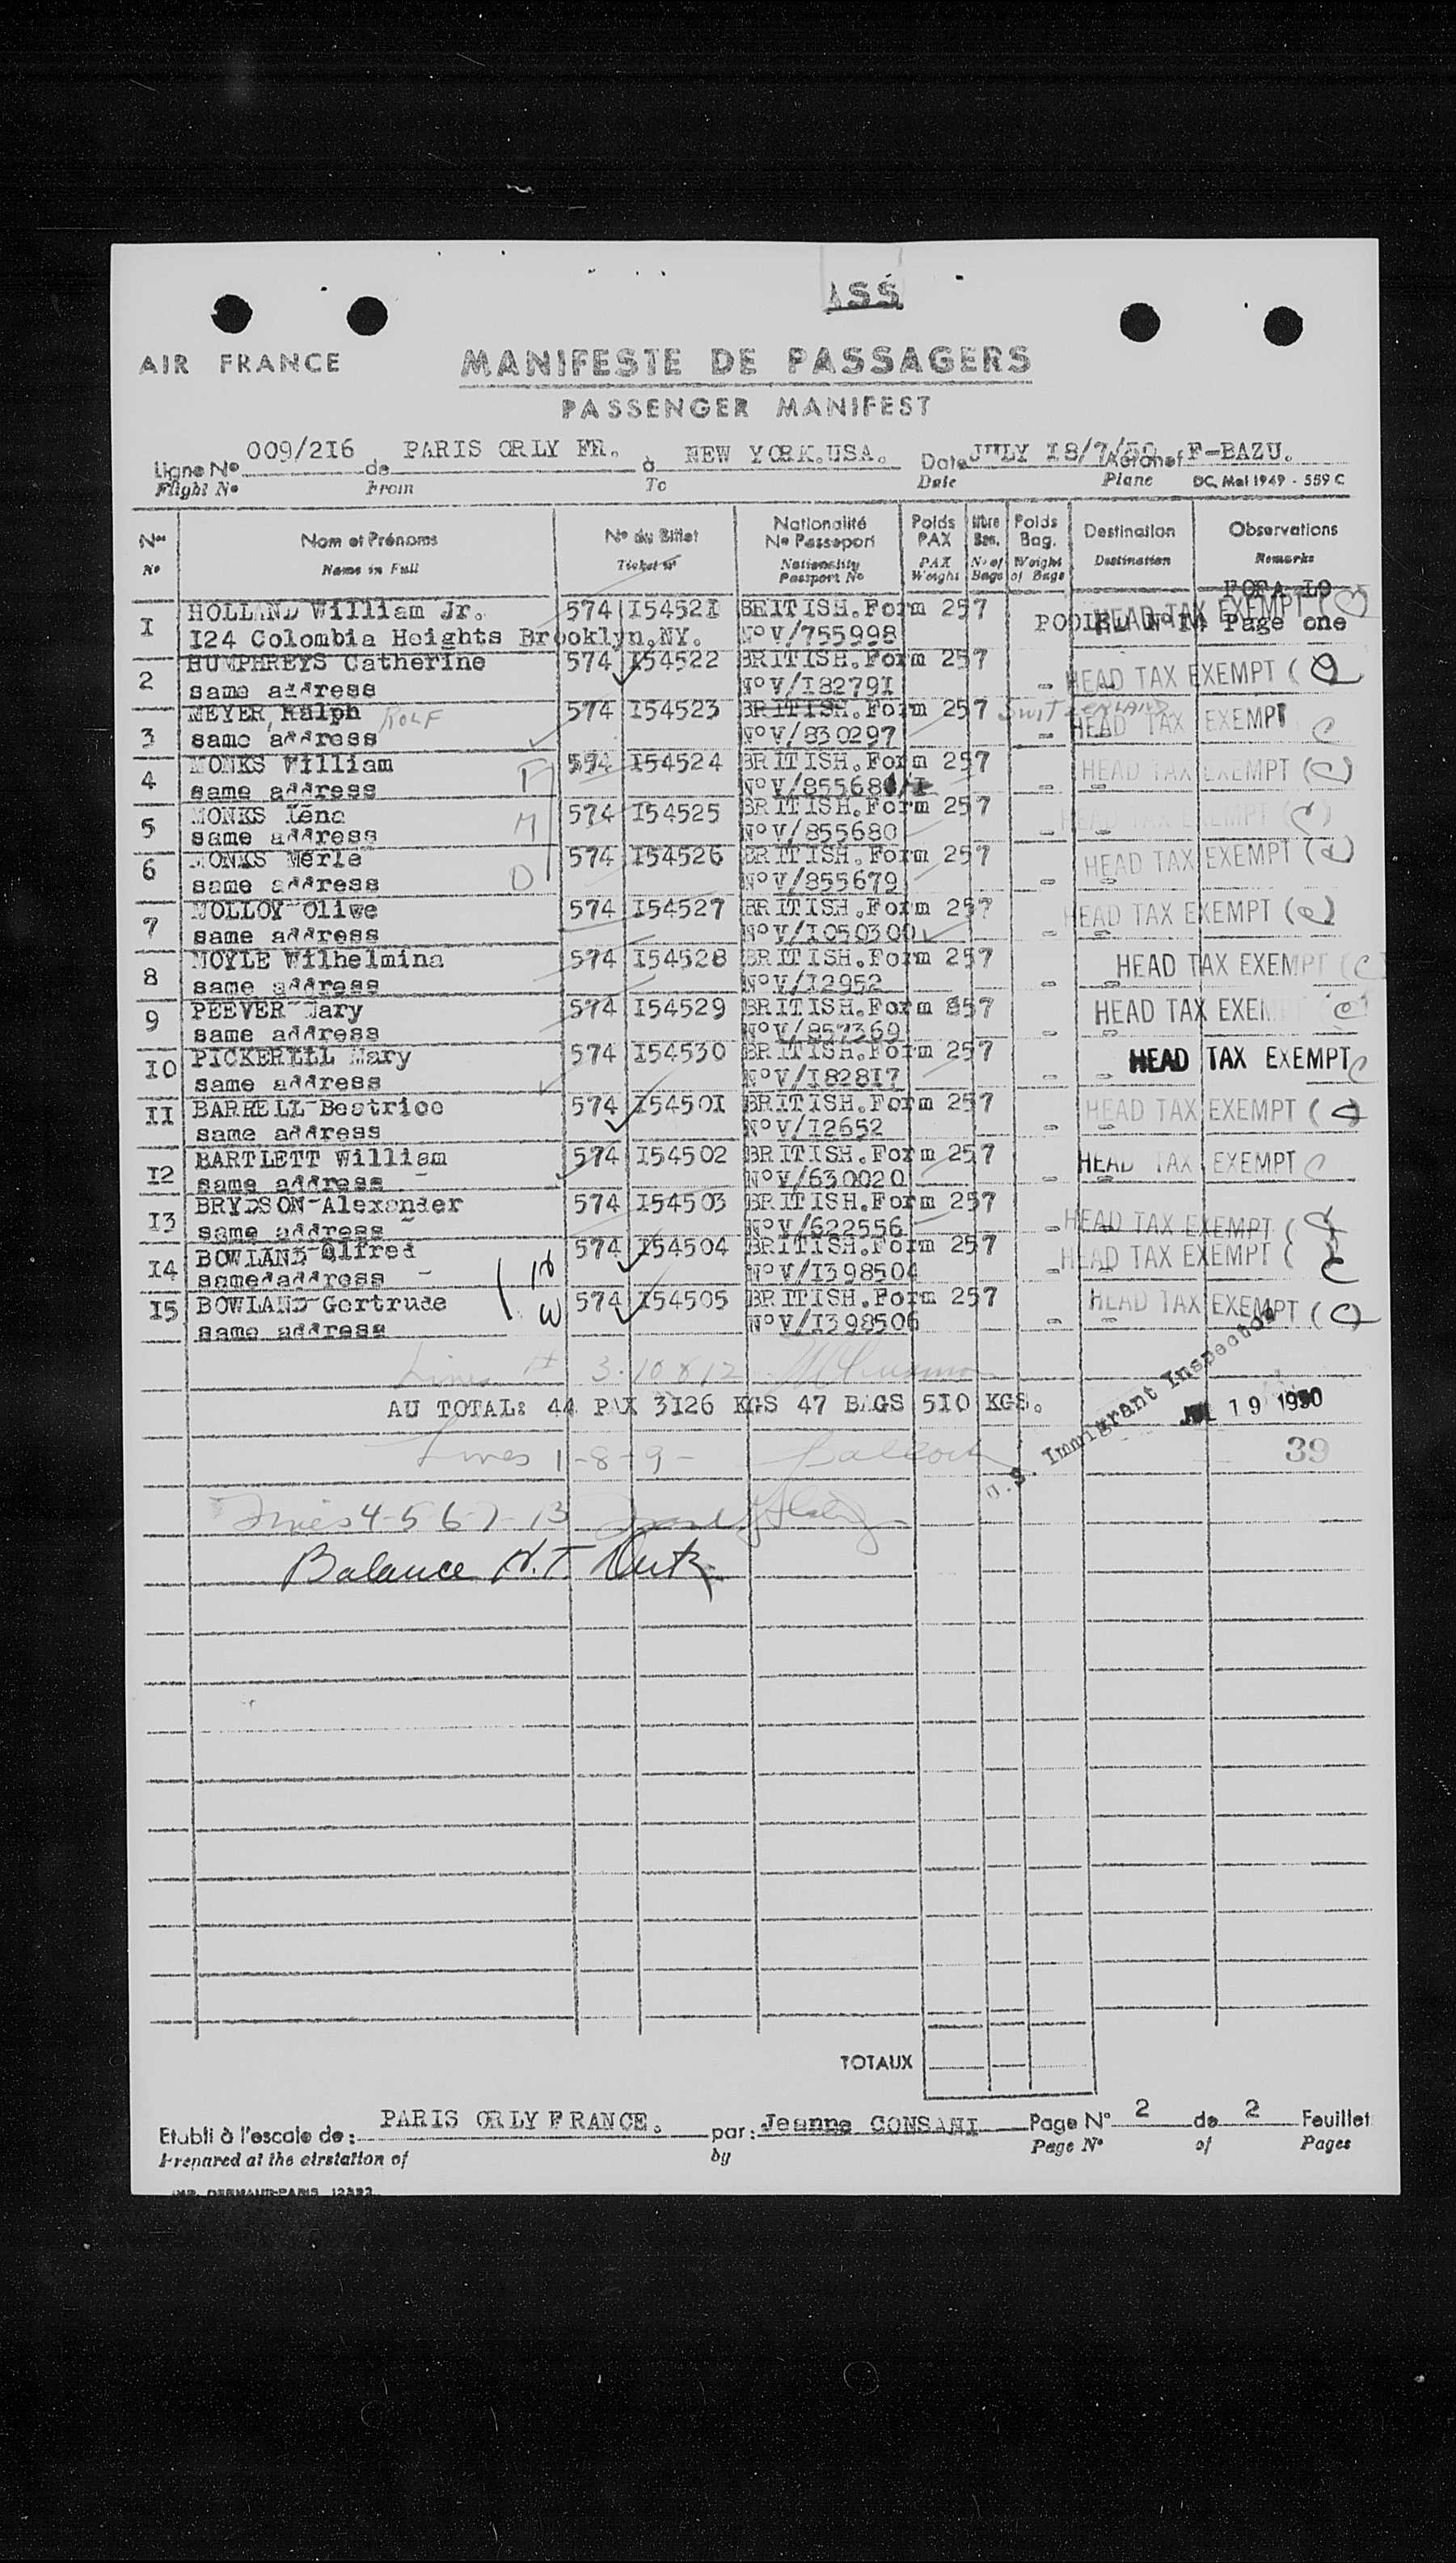 ASS
AIR FRANCE
MANIFESTE DE PASSAGERS
PASSENGER MANIFEST
Ligne No 009/2I6 de PARIS ORLY FR. à NEW YORK.USA. Date JULY I8/7/50 Aéronef F-BAZU.
Flight No From To Date Plane DC. Mai 1949 - 559 C
Nos Nom et Prénoms No du Billet Nationalité No Passeport Poids PAX Nbre Bag. Poids Bag. Destination Observations
No Name in Full Ticket no Nationality Passport No PAX Weight No of Bags Weight of Bags Destination Remarks
I HOLLAND William Jr. 574 I5452I BRITISH.Form 257 HEAD TAX EXEMPT
I24 Colombia Heights Brooklyn.NY. No V/755998 Page one
2 HUMPHREYS Catherine 574 I54522 BRITISH.Form 257
same address No V/I8279I - HEAD TAX EXEMPT (
3 MEYER, Ralph ROLF 574 I54523 BRITISH.Form 257 SWITZERLAND
same address No V/830297 - HEAD TAX EXEMPT C
4 MONKS William F 574 I54524 BRITISH.Form 257 HEAD TAX EXEMPT (C)
same address No V/
5 MONKS Léna M 574 I54525 BRITISH.Form 257
same address No V/855680 - HEAD TAX EXEMPT (C)
6 MONKS Merle 574 I54526 BRITISH.Form 257 HEAD TAX EXEMPT (
same address D No V/855679 -
7 MOLLOY Olive 574 I54527 BRITISH.Form 257 HEAD TAX EXEMPT (
same address No V/I050300 -
8 MOYLE Wilhelmina 574 I54528 BRITISH.Form 257 HEAD TAX EXEMPT (C
same address No V/I2952
9 PEEVER Mary 574 I54529 BRITISH.Form 857 HEAD TAX EXEM
same address No V/857369 -
I0 PICKERILL Mary 574 I54530 BRITISH.Form 257 HEAD TAX EXEMPT C
same address No V/I828I7 -
II BARRELL Beatrice 574 I5450I BRITISH.Form 257 HEAD TAX EXEMPT (
same address No V/I2652 -
I2 BARTLETT William 574 I54502 BRITISH.Form 257 HEAD TAX EXEMPT C
same address No V/630020
I3 BRYDSON Alexander 574 I54503 BRITISH.Form 257
same address No V/622556 - HEAD TAX EXEMPT (
I4 BOWLAND Alfred 574 I54504 BRITISH.Form 257 HEAD TAX EXEMPT (
same address No V/I398504 -
I5 BOWLAND Gertrude W 574 I54505 BRITISH.Form 257 HEAD TAX EXEMPT (C)
same address No V/I398506 -
Lines 3-10 & 12
U.S. Immigrant Inspector
AU TOTAL: 44 PAX 3I26 KGS 47 BAGS 5I0 KGS.
JUL 19 1950
Lines 1-8-9-
39
Lines 4-5 6-7-13
Balance H.T.
TOTAUX
Etabli à l'escale de: PARIS ORLY FRANCE. par: Jeanne CONSANI Page No 2 de 2 Feuillet
Prepared at the airstation of by Page No of Pages